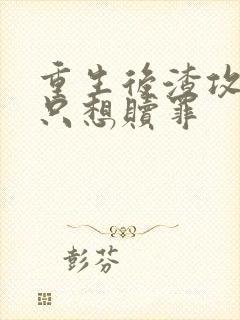 重生後渣攻
只想贖罪
彭芬